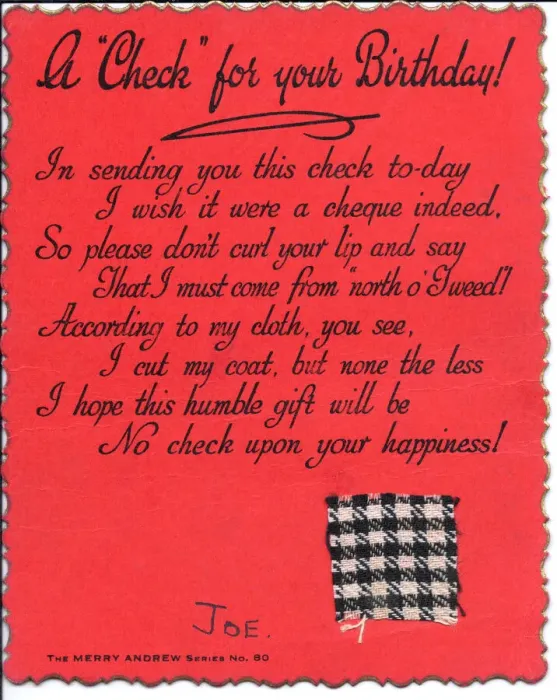 A "Check" for your Birthday!
In sending you this check to-day
I wish it were a cheque indeed,
So please don't curl your lip and say
That I must come from "north o' Tweed"!
According to my cloth, you see,
I cut my coat, but none the less
I hope this humble gift will be
No check upon your happiness!
JOE.
THE MERRY ANDREW SERIES NO. 80